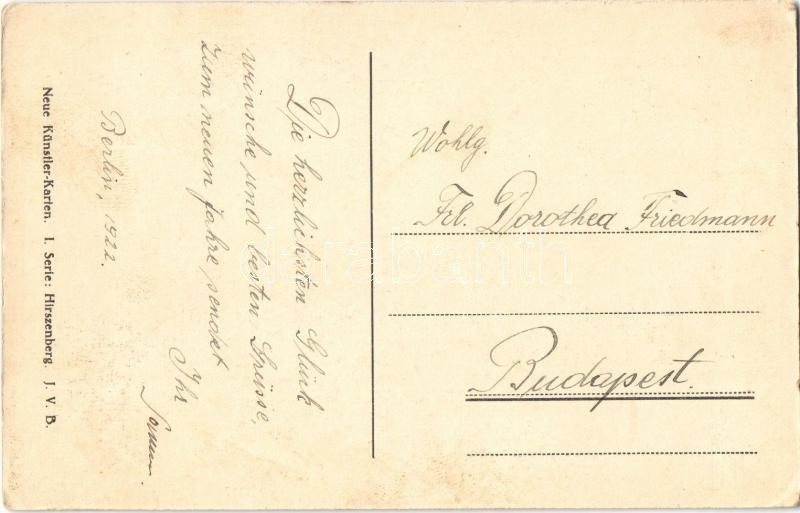 Die herzlichsten Glück
wünsche und besten Grüsse,
zum neuen Jahre, sendet
Ihr
Berlin, 1922.
Neue Künstler-Karten. I. Serie: Hirszenberg. J. V. B.
Wohlg.
Frl. Dorothea Friedmann
Budapest.
Darabanth